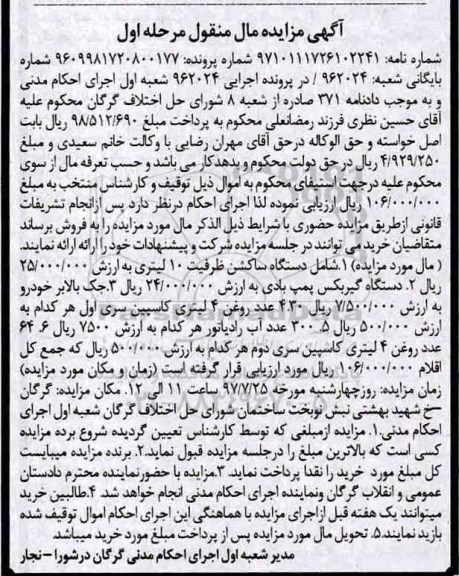 آگهی مزایده مال منقول مرحله اول
شماره نامه: ۹۷۱۰۱۱۱۷۲۶۱۰۲۲۴۱ شماره پرونده: ۹۶۰۹۹۸۱۷۲۰۸۰۰۱۷۷ شماره
بایگانی شعبه: ۹۶۲۰۲۴ / در پرونده اجرایی ۹۶۲۰۲۴ شعبه اول اجرای احکام مدنی
و به موجب دادنامه ۳۷۱ صادره از شعبه ۸ شورای حل اختلاف گرگان محکوم علیه
آقای حسین نظری فرزند رمضانعلی محکوم به پرداخت مبلغ ۹۸/۵۱۲/۶۹۰ ریال بابت
اصل خواسته و حق الوکاله درحق آقای مهران رضایی با وکالت خانم سعیدی و مبلغ
۴/۹۲۹/۲۵۰ ریال در حق دولت محکوم و بدهکار می باشد و حسب تعرفه مال از سوی
محکوم علیه درجهت استیفای محکوم به اموال ذیل توقیف و کارشناس منتخب به مبلغ
۱۰۶/۰۰۰/۰۰۰ ریال ارزیابی نموده لذا اجرای احکام درنظر دارد پس ازانجام تشریفات
قانونی ازطریق مزایده حضوری با شرایط ذیل الذکر مال مورد مزایده را به فروش برساند
متقاضیان خرید می توانند در جلسه مزایده شرکت و پیشنهادات خود را ارائه ارائه نمایند.
( مال مورد مزایده) ۱.شامل دستگاه ساکشن ظرفیت ۱۰ لیتری به ارزش ۲۵/۰۰۰/۰۰۰
ریال ۲. دستگاه گیربکس پمپ بادی به ارزش ۲۴/۰۰۰/۰۰۰ ریال ۳.جک بالابر خودرو
به ارزش ۷/۵۰۰/۰۰۰ ریال ۴.۳۰ عدد روغن ۴ لیتری کاسپین سری اول هر کدام به
ارزش ۵۰۰/۰۰۰ ریال ۵. ۳۰۰ عدد آب رادیاتور هر کدام به ارزش ۷۵۰۰ ریال ۶. ۶۴
عدد روغن ۴ لیتری کاسپین سری دوم هر کدام به ارزش ۵۰۰/۰۰۰ ریال که جمع کل
اقلام ۱۰۶/۰۰۰/۰۰۰ ریال مورد ارزیابی قرار گرفته است (زمان و مکان مورد مزایده)
زمان مزایده: روزچهارشنبه مورخه ۹۷/۷/۲۵ ساعت ۱۱ الی ۱۲. مکان مزایده: گرگان
–خ شهید بهشتی نبش نوبخت ساختمان شورای حل اختلاف گرگان شعبه اول اجرای
احکام مدنی.۱. مزایده ازمبلغی که توسط کارشناس تعیین گردیده شروع برده مزایده
کسی است که بالاترین مبلغ را درجلسه مزایده قبول نماید.۲. برنده مزایده میبایست
کل مبلغ مورد خرید را نقدا پرداخت نماید. ۳.مزایده با حضورنماینده محترم دادستان
عمومی و انقلاب گرگان ونماینده اجرای احکام مدنی انجام خواهد شد. ۴.طالبین خرید
میتوانند یک هفته قبل ازاجرای مزایده با هماهنگی این اجرای احکام اموال توقیف شده
بازید نمایند.۵. تحویل مال مورد مزایده پس از پرداخت مبلغ مورد خرید میباشد.
مدیر شعبه اول اجرای احکام مدنی گرگان درشورا – نجار